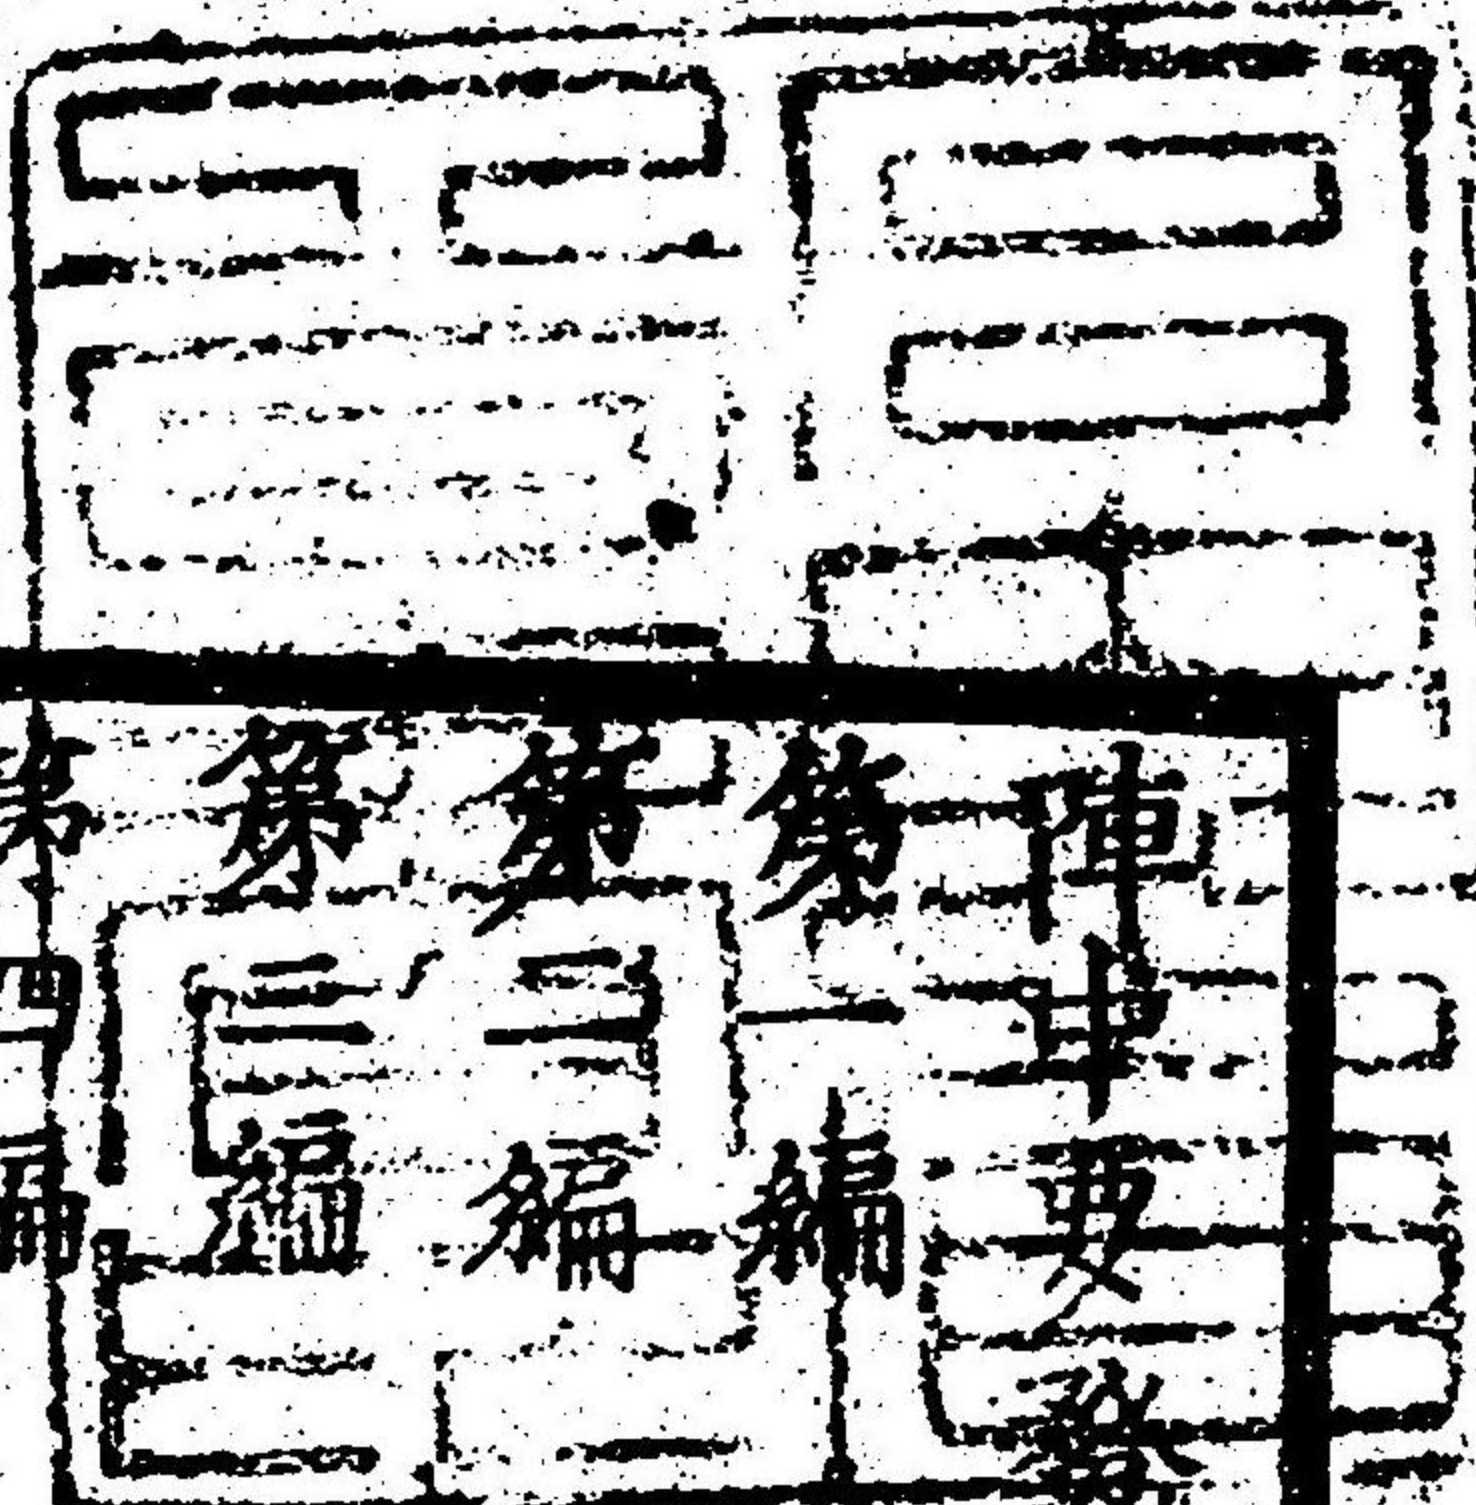 陣中要發
第一編
第二編
第三編
第四編